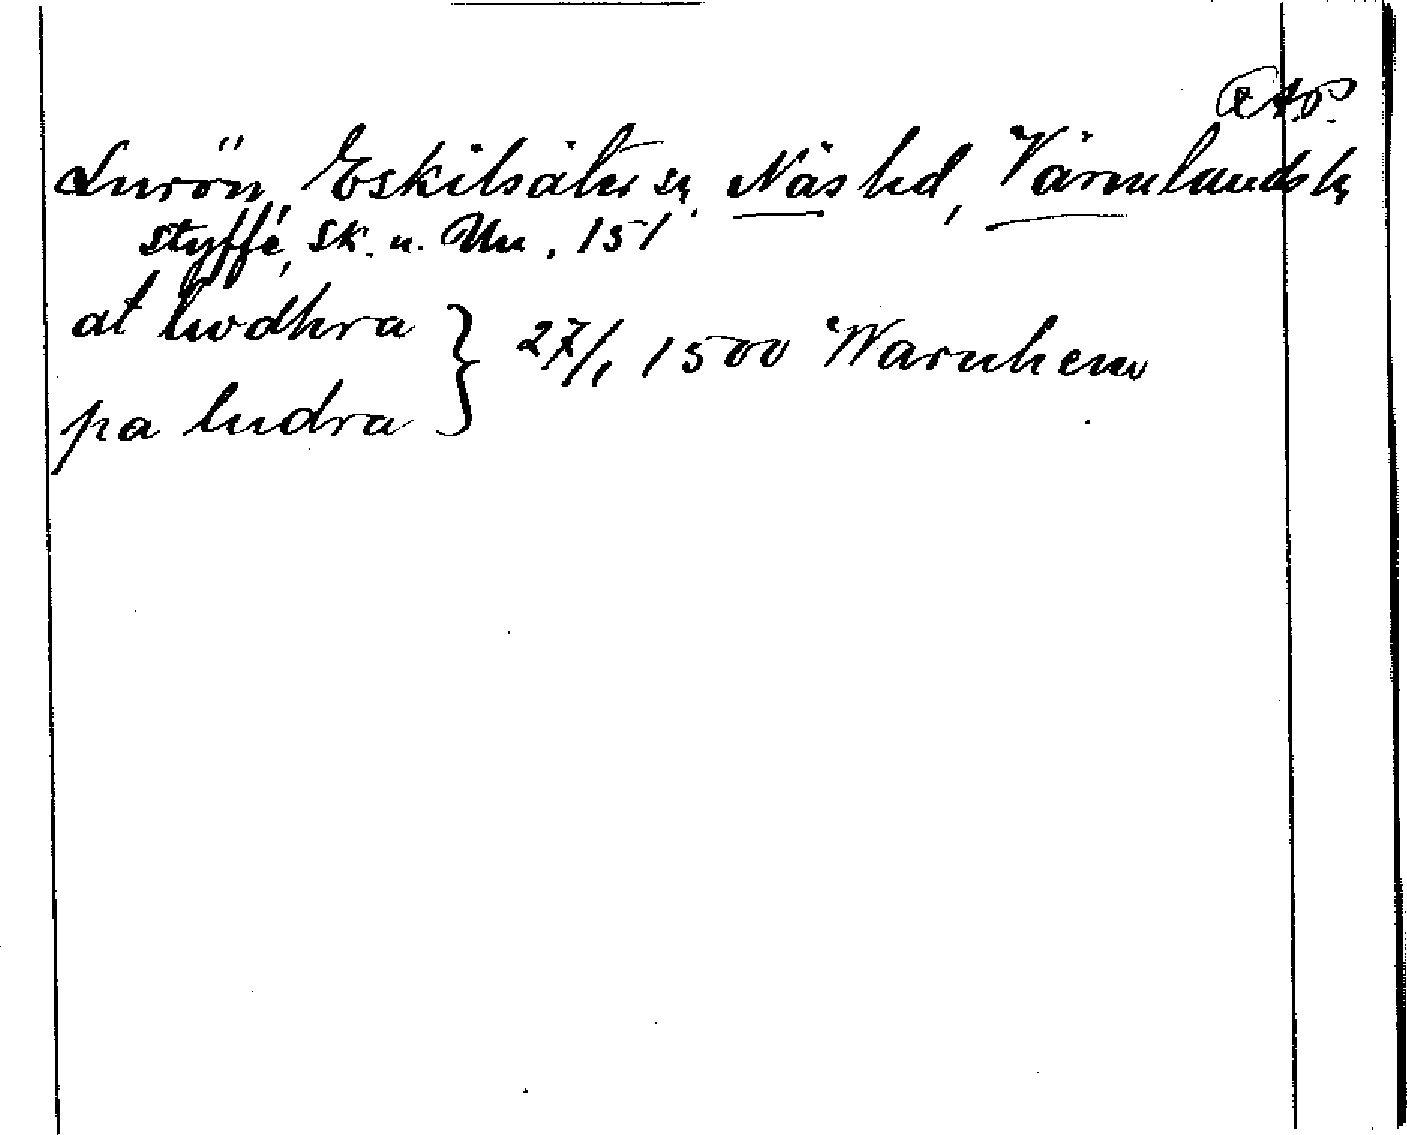 Lurön, Eskilsäter sn, Näs hd, Värmlands l,
Styffe, Sk. u. Un., 151
at lwdhra
pa ludra } 27/1 1500 Warnhem